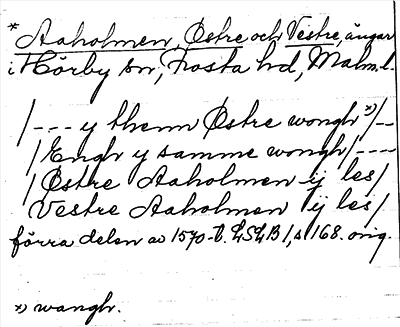 * Aaholmen, Østre och Vestre, ängar
i Hörby sn, Frosta hd, Malm. l.
/--- y thenn Østre wongh *) /--
/Engh y samme wongh/----
/Østre Aaholmen ij les/
Vestre Aaholmen ij les/
förra delen av 1570-t. LSLB 1, s 168. orig.
*) wangh.